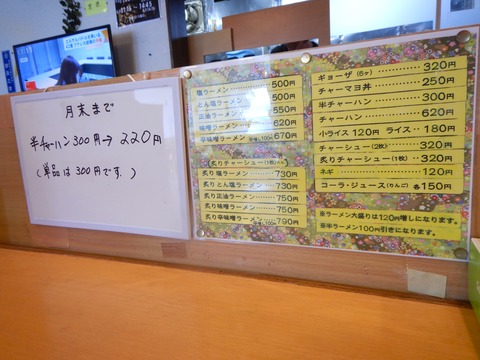 月末まで
半チャーハン300円→220円
(単品は300円です。)
塩ラーメン 500円
とん塩ラーメン 500円
正油ラーメン 550円
味噌ラーメン 620円
辛味噌ラーメン 670円
炙りチャーシュー(1枚)入り
炙り塩ラーメン 730円
炙りとん塩ラーメン 730円
炙り正油ラーメン 750円
炙り味噌ラーメン 750円
炙り辛味噌ラーメン 790円
ギョーザ(6ヶ) 320円
チャーマヨ丼 250円
半チャーハン 300円
チャーハン 620円
小ライス 120円 ライス 180円
チャーシュー(2枚) 320円
炙りチャーシュー(1枚) 320円
ネギ 120円
コーラ・ジュース(りんご) 各150円
※ラーメン大盛りは120円増しになります。
※半ラーメン100円引きになります。